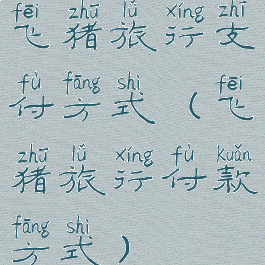 fēi zhū lǚ xíng zhī
飞猪旅行支
fù fāng shì fēi
付方式（飞
zhū lǚ xíng fù kuǎn
猪旅行付款
fāng shì
方式）